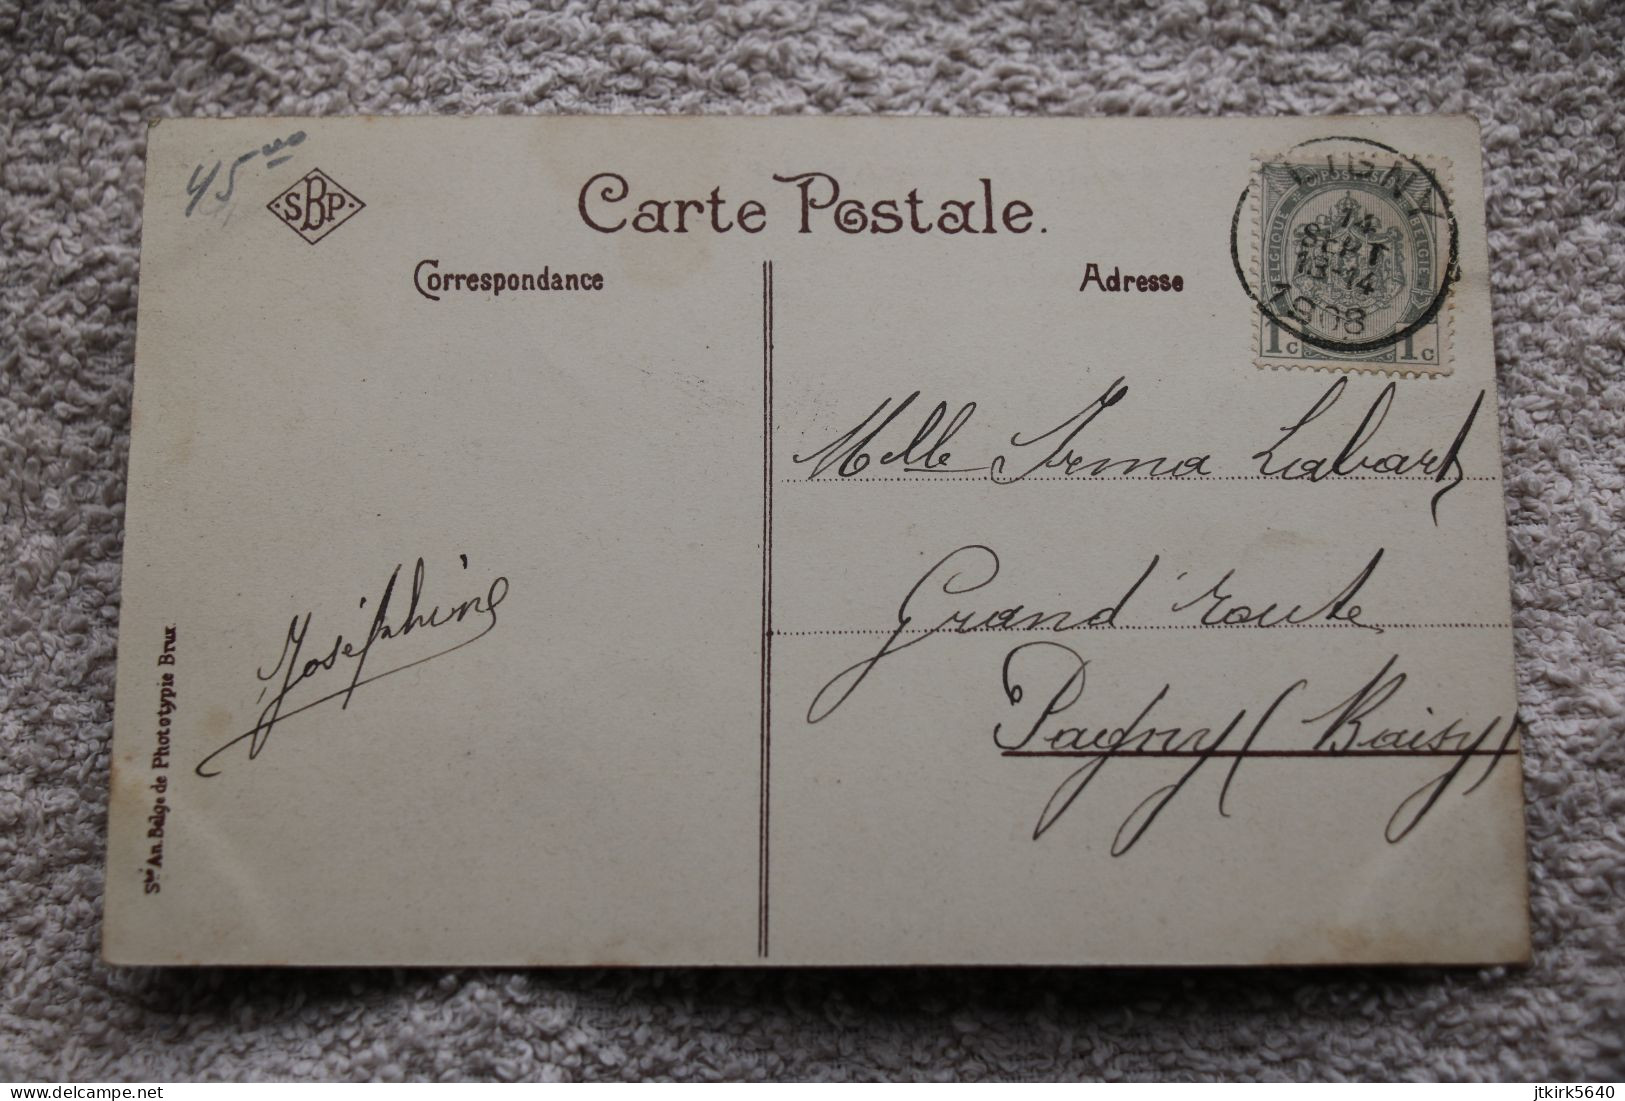 45
SBP
Carte Postale.
Correspondance
Adresse
LIGNY
14
SEPT
13-14
1908
BELGIQUE BELGIE
1c 1c
Melle Irma Labart
Grand'route
Pagny (Baisy)
Joséphine
Sté An. Belge de Phototypie Brux.
delcampe.net
jtkirk5640